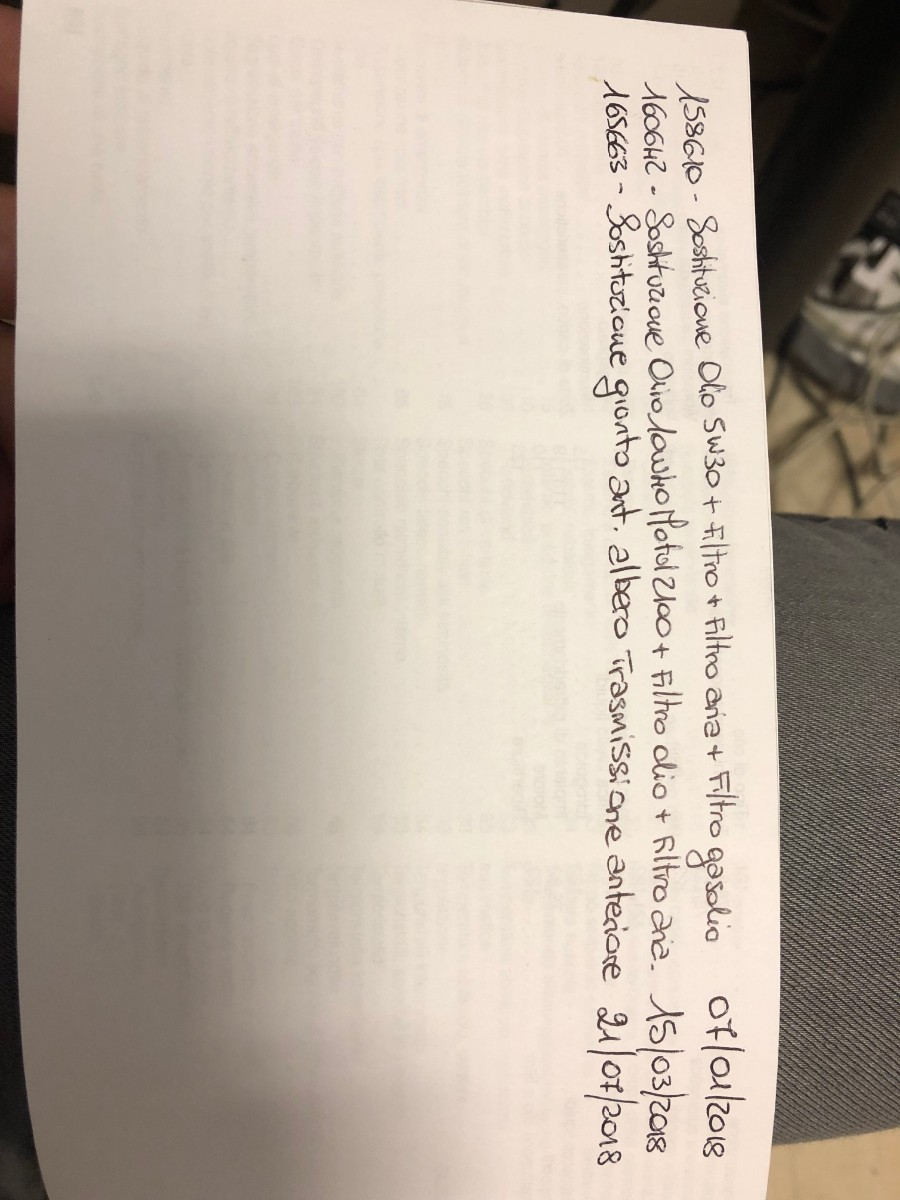 158610 - Sostituzione Olio 5W30 + Filtro + Filtro aria + Filtro gasolio 07/01/2018
160642 - Sostituzione Motul 2100 + Filtro olio + Filtro aria. 15/03/2018
165663 - Sostituzione giunto ant. albero Trasmissione anteriore 21/07/2018